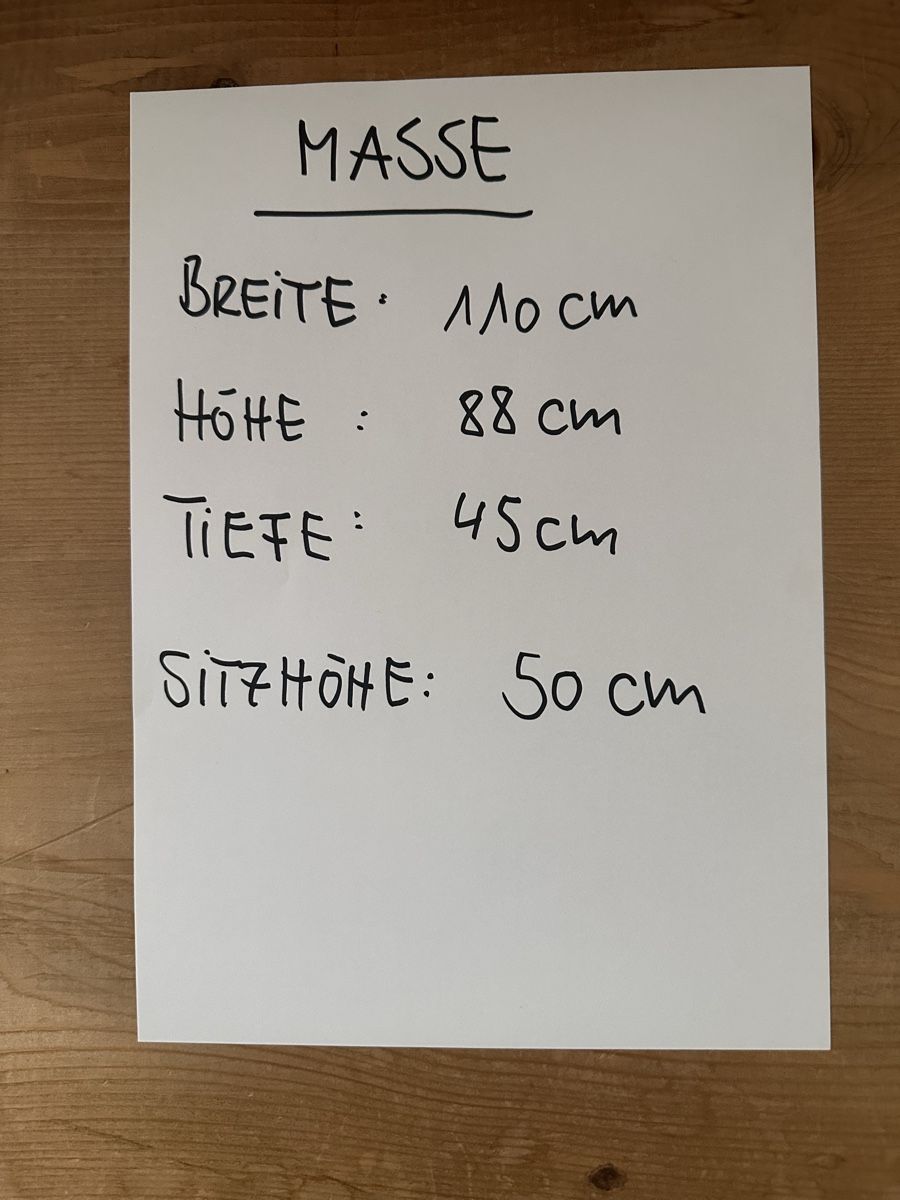 MASSE
BREiTE: 110 cm
HÖHE : 88 cm
TiEFE: 45 cm
SiTZHÖHE: 50 cm